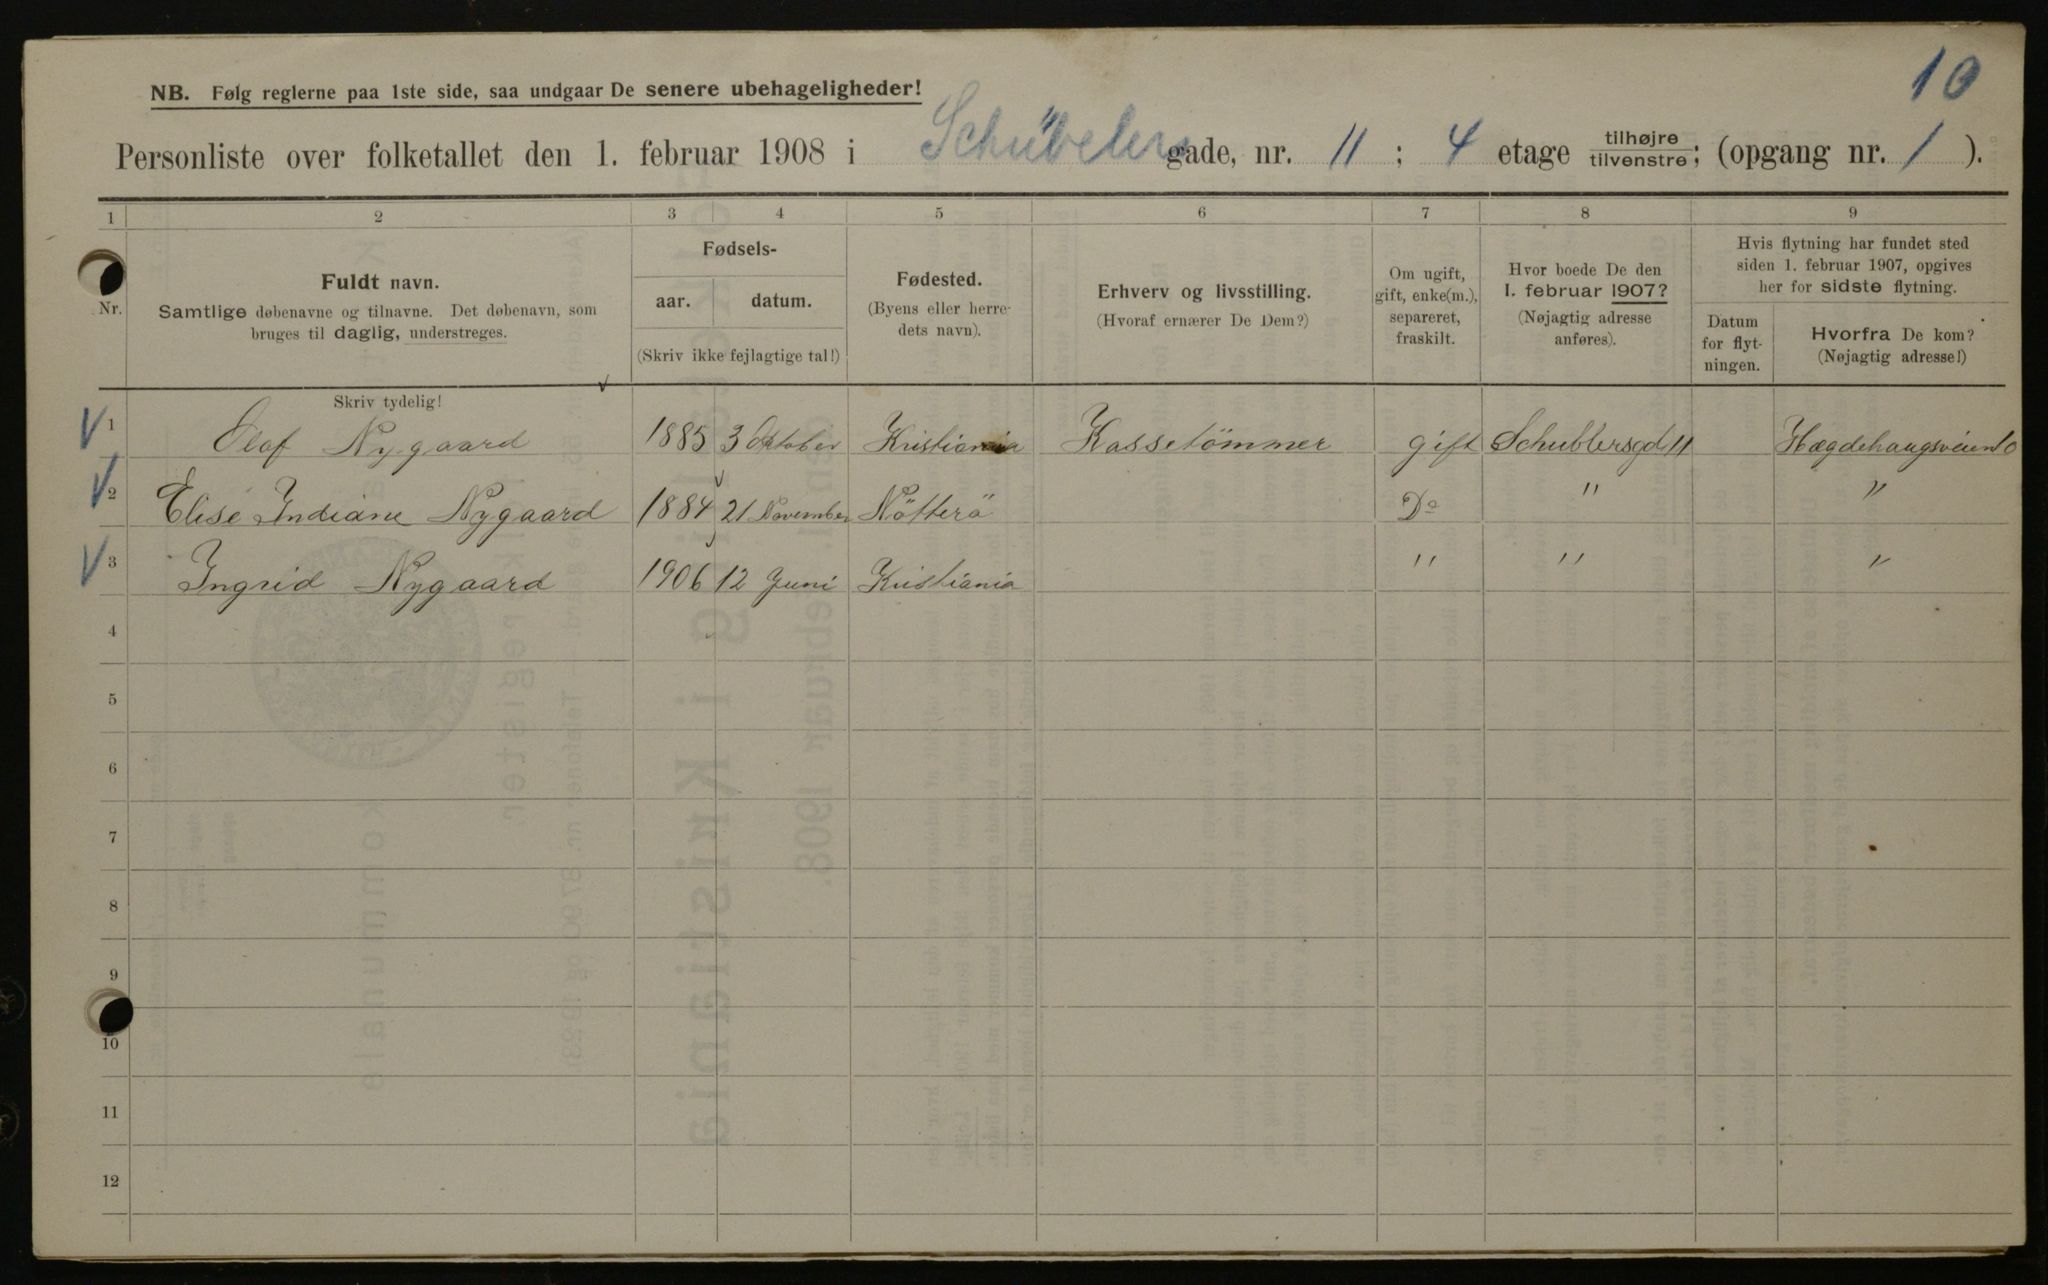 10
NB. Følg reglerne paa 1ste side, saa undgaar De senere ubehageligheder!
Personliste over folketallet den 1. februar 1908 i Schübelers gade, nr. 11 ; 4 etage tilhøjre tilvenstre; (opgang nr. 1 ).
1 2 3 4 5 6 7 8 9
Nr.
Fuldt navn.
Samtlige døbenavne og tilnavne. Det døbenavn, som
bruges til daglig, understreges.
Fødsels-
aar. datum.
(Skriv ikke fejlagtige tal!)
Fødested.
(Byens eller herre-
dets navn).
Erhverv og livsstilling.
(Hvoraf ernærer De Dem?)
Om ugift,
gift, enke(m.),
separeret,
fraskilt.
Hvor boede De den
1. februar 1907?
(Nøjagtig adresse
anføres).
Hvis flytning har fundet sted
siden 1. februar 1907, opgives
her for sidste flytning.
Datum
for flyt-
ningen.
Hvorfra De kom?
(Nøjagtig adresse!)
Skriv tydelig!
1 Olaf Nygaard 1885 3 Oktober Kristiania Kassetömmer gift Schublersgd 11 Hægdehaugsveien 10
2 Elise Indiane Nygaard 1884 21 November Nötterö Do " "
3 Ingrid Nygaard 1906 12 Juni Kristiania " " "
4
5
6
7
8
9
10
11
12